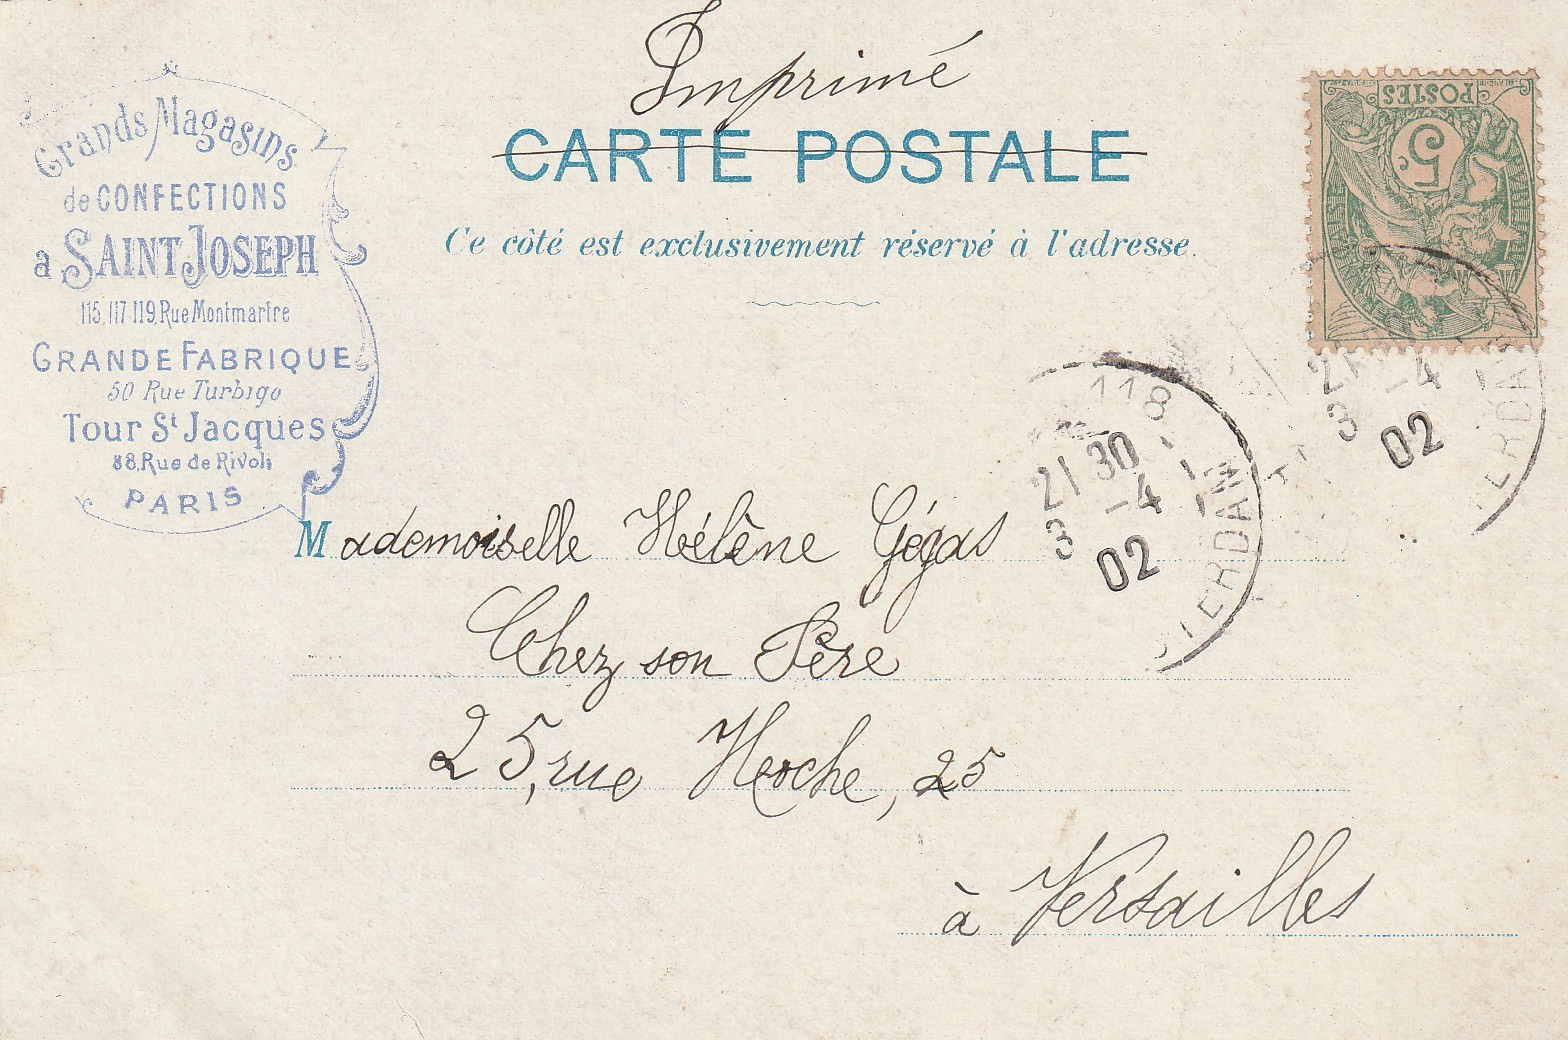 Imprimé
CARTE POSTALE
Ce côté est exclusivement réservé à l'adresse.
Grands Magasins
de CONFECTIONS
a SAINT JOSEPH
115, 117 119, Rue Montmartre
GRANDE FABRIQUE
50 Rue Turbigo
Tour St Jacques
88, Rue de Rivoli
PARIS
POSTES
5c
118
21 30
3 -4
02
21
3 -4
02
Mademoiselle Hélène Gégas
Chez son Père
25, rue Hoche, 25
à Versailles